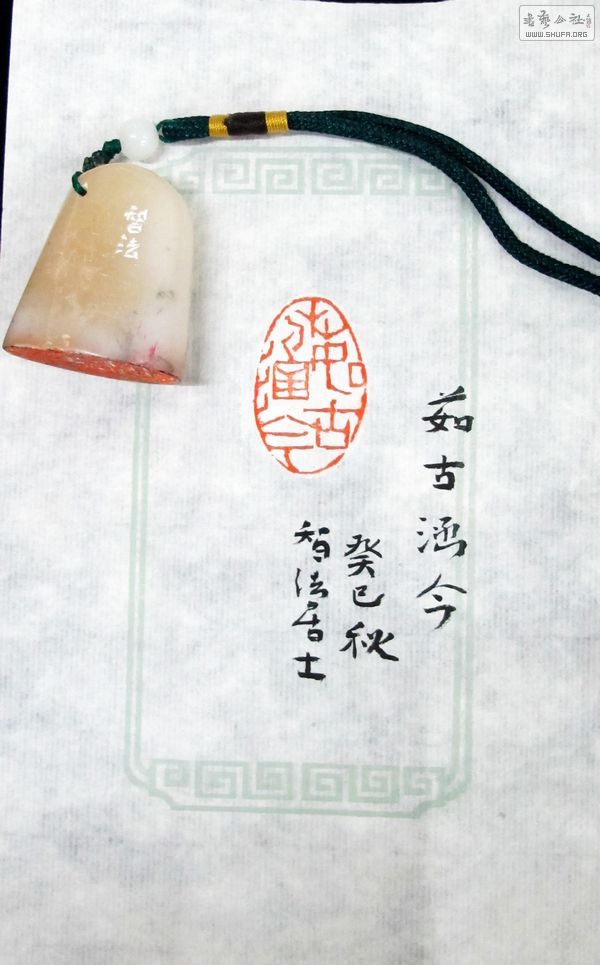 书艺公社
WWW.SHUFA.ORG
智法
茹古涵今
茹古涵今
癸巳秋
智法居士